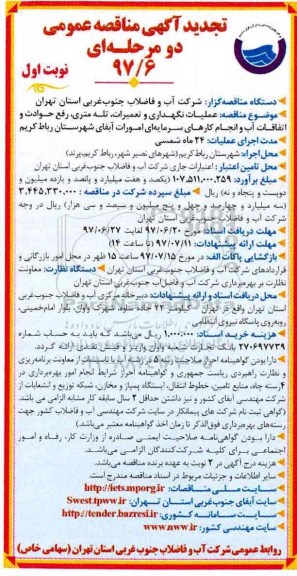 تجدید آگهی مناقصه عمومی
دو مرحله‌ای
۹۷/۶
نوبت اول
دستگاه مناقصه‌گزار: شرکت آب و فاضلاب جنوب‌غربی استان تهران
موضوع مناقصه: عملیات نگهداری و تعمیرات، تله متری، رفع حوادث و
اتفاقات آب و انجام کارهای سرمایه‌ای امورات آبفای شهرستان رباط کریم
مدت اجرای عملیات: ۲۴ ماه شمسی
محل اجراء: شهرستان رباط کریم (شهرهای نصیر شهر، رباط کریم، پرند)
محل تامین اعتبار: اعتبارات جاری شرکت آب و فاضلاب جنوب‌غربی استان تهران
مبلغ برآورد: ۱۰۷,۵۱۱,۰۰۰,۲۵۹ (یکصد و هفت میلیارد و پانصد و یازده میلیون و
دویست و پنجاه و نه) ریال مبلغ سپرده شرکت در مناقصه: ۳,۴۴۵,۳۳۰,۰۰۰
(سه میلیارد و چهارصد و چهل و پنج میلیون و سیصد و سی هزار) ریال در وجه
شرکت آب و فاضلاب جنوب غربی استان تهران
مهلت دریافت اسناد: مورخ ۹۷/۰۶/۲۰ لغایت ۹۷/۰۶/۲۷
مهلت ارائه پیشنهادات: ۹۷/۰۷/۱۱ (تا ساعت ۱۴)
بازگشایی پاکات الف: در مورخ ۹۷/۰۷/۱۵ ساعت ۱۵ ظهر در محل امور بازرگانی و
قراردادهای شرکت آب و فاضلاب جنوب غربی استان تهران دستگاه نظارت: معاونت
نظارت بر بهره‌برداری شرکت آب و فاضلاب جنوب غربی استان تهران
محل دریافت اسناد و ارائه پیشنهادات: دبیرخانه مرکزی آب و فاضلاب جنوب‌غربی
استان تهران واقع در تهران - کیلومتر ۲۲ جاده ساوه، شهرک واوان بلوار امام‌خمینی،
روبه‌روی پاسگاه نیروی انتظامی
هزینه خرید اسناد: ۱,۰۰۰,۰۰۰ ریال می‌باشد که باید به حساب شماره
۲۷۰۶۹۷۷۳۹ بانک تجارت شعبه واوان واریز و فیش نقدی ارائه گردد.
دارا بودن گواهینامه احراز صلاحیت رتبه ۵ در رشته آب یا تاسیسات از معاونت برنامه‌ریزی
و نظارت راهبردی ریاست جمهوری و گواهینامه احراز شرایط انجام امور بهره‌برداری در
۴ رسته چاه، منابع تامین، خطوط انتقال، ایستگاه پمپاژ و مخازن، شبکه توزیع و انشعابات از
شرکت مهندسی آبفای کشور و نیز داشتن حداقل ۲ سال سابقه کار مشابه الزامی می باشد.
(گواهی ثبت نام شرکت های پیمانکار در سایت شرکت مهندسی آب و فاضلاب کشور جهت
رسته‌های بهره‌برداری فوق‌الذکر تا زمان اخذ گواهینامه معتبر می‌باشد.)
دارا بودن گواهی‌نامه صلاحیت ایمنی صادره از وزارت کار، رفاه و امور
اجتماعی برای کلیه شرکت‌کنندگان الزامی می‌باشد.
هزینه درج آگهی در ۲ نوبت به عهده برنده مناقصه می‌باشد.
سایر اطلاعات و جزئیات مربوط در اسناد مناقصه مندرج است.
سایت ملی مناقصات: http://iets.mporg.ir
سایت آبفای جنوب‌غربی استان تهران: Swest.tpww.ir
سایت سامانه کشوری: http://tender.bazresi.ir
سایت مهندسی کشور: www.nww.ir
روابط عمومی شرکت آب و فاضلاب جنوب غربی استان تهران (سهامی خاص)